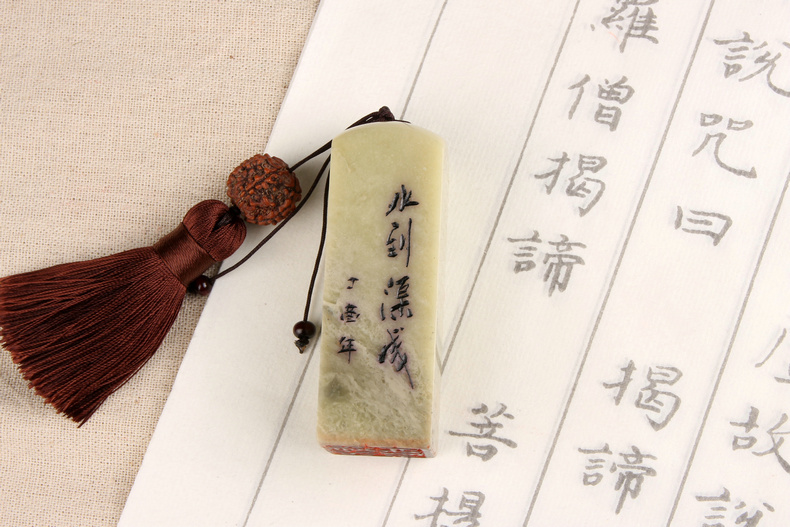 故說
說咒曰 揭諦
羅僧揭諦 菩提
水到渠成
丁 年